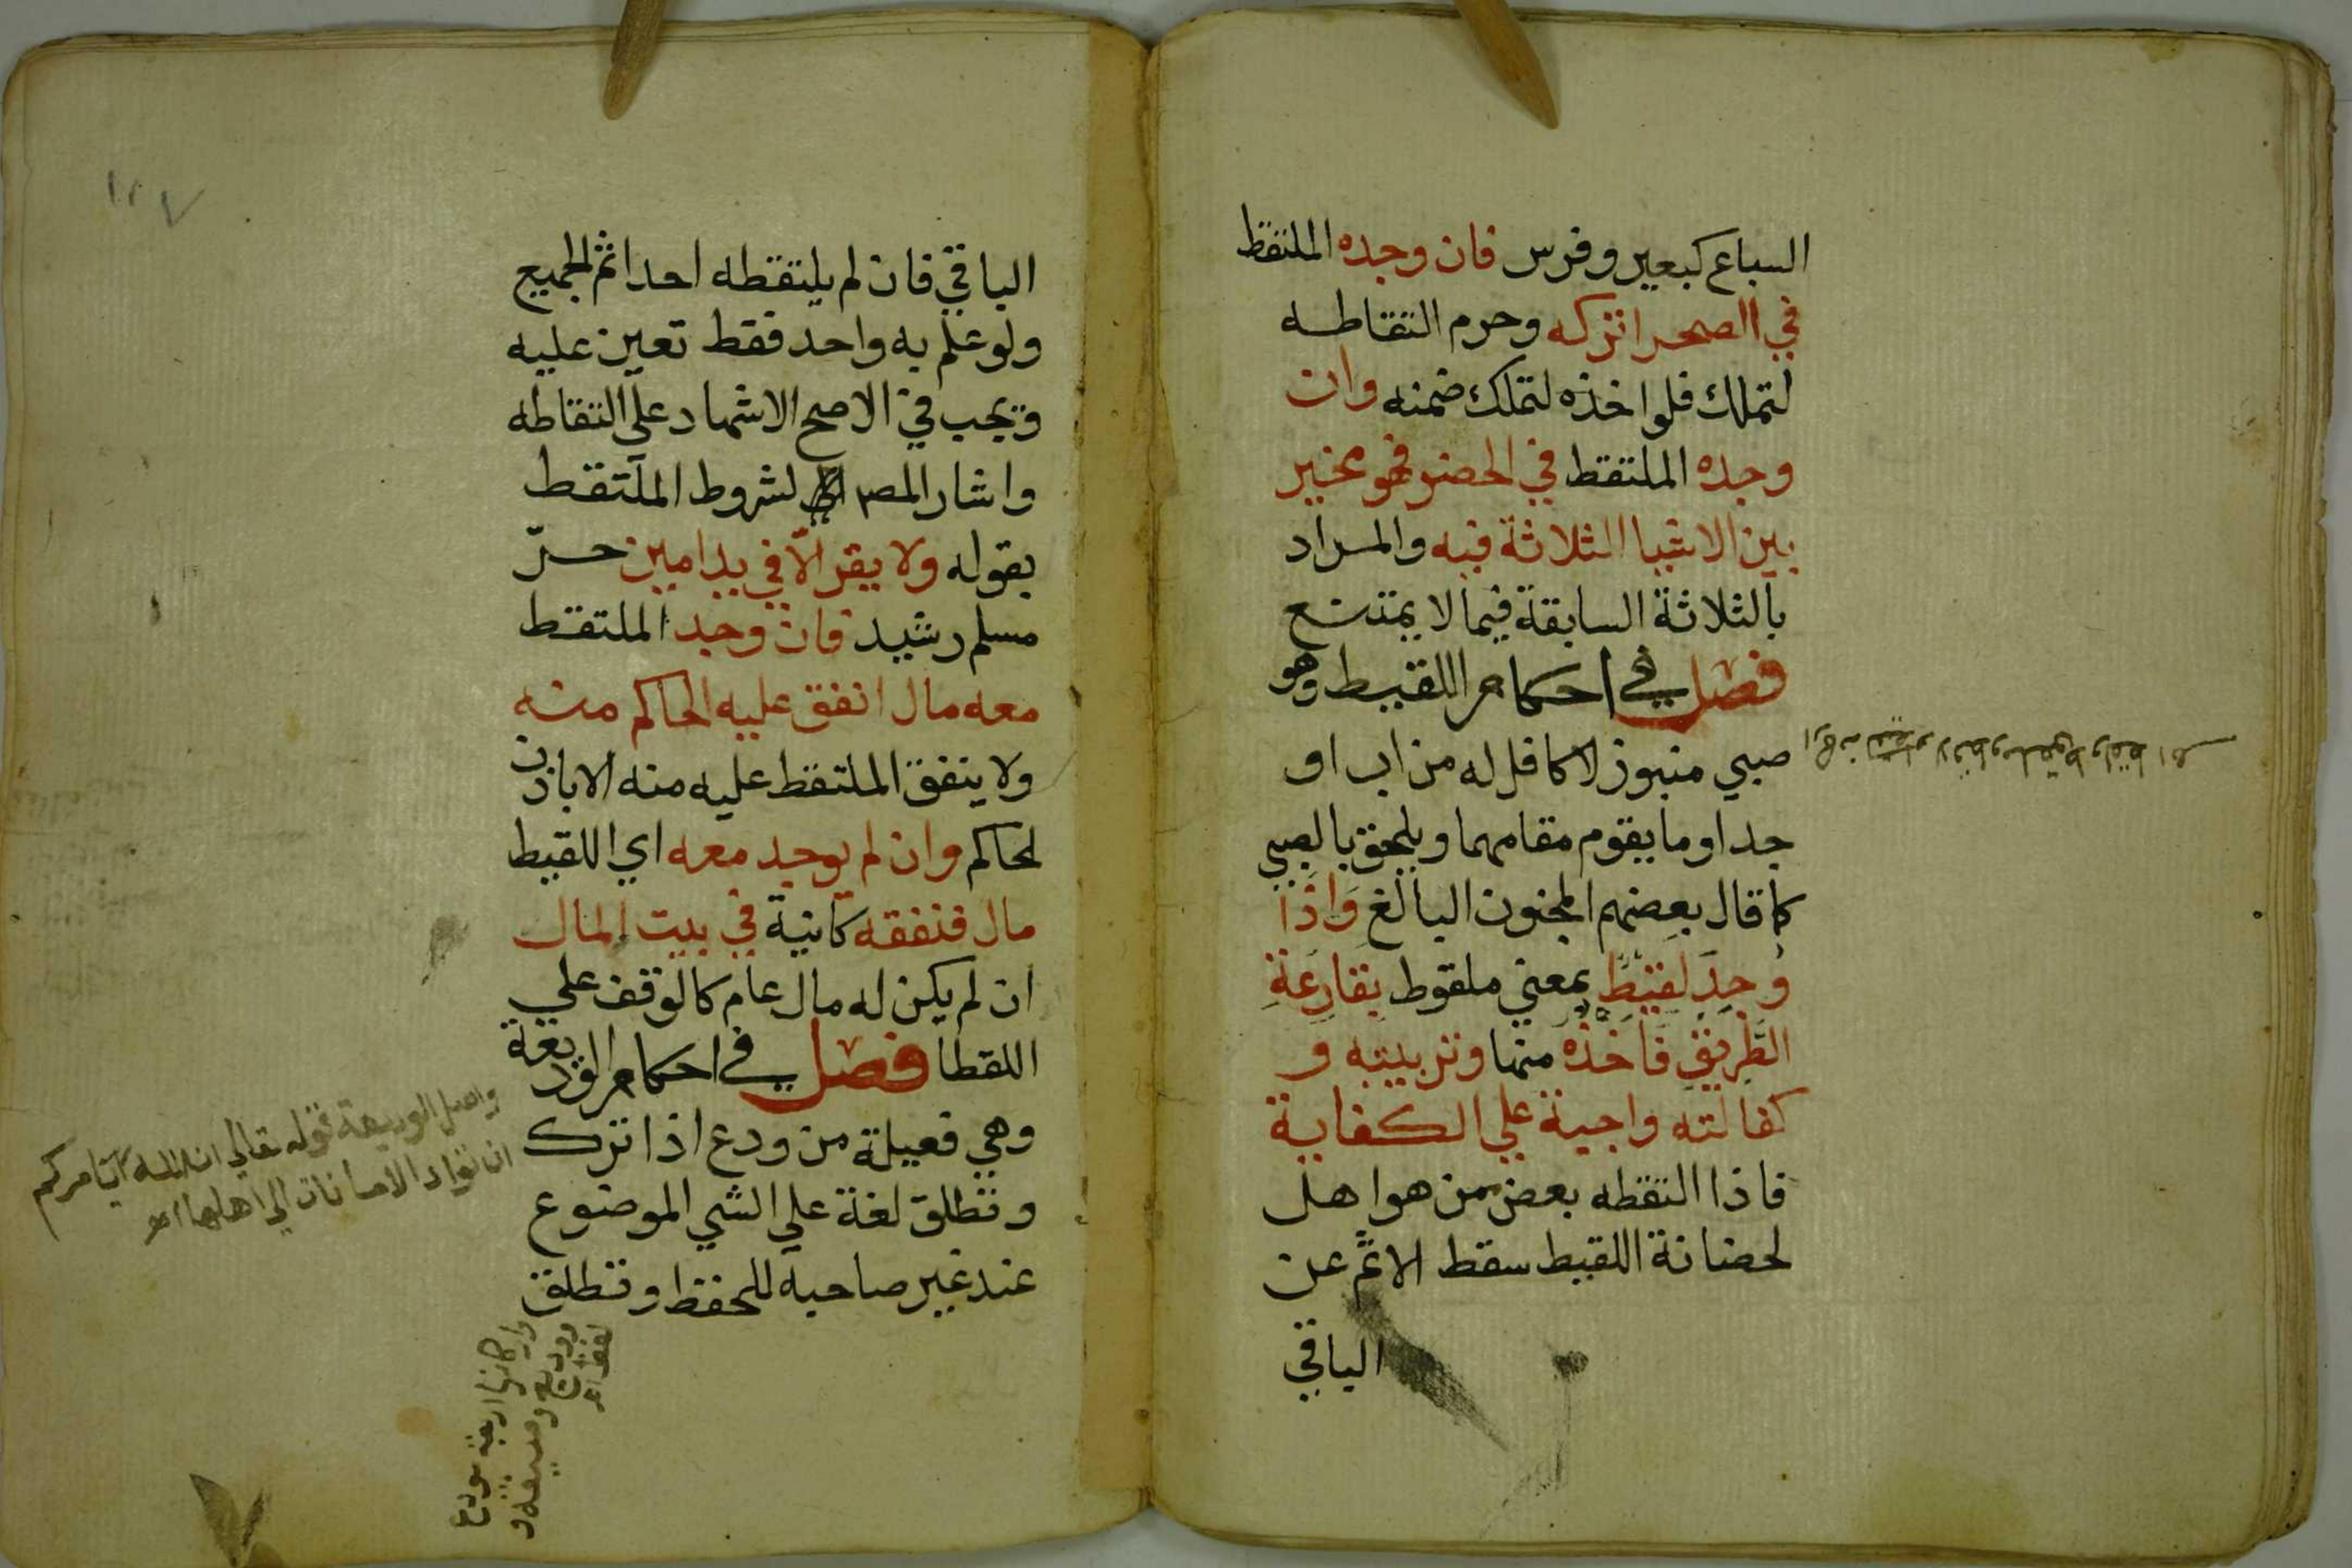 السباع كبعير وفرس فان وجده الملتقط
في الصحرا تركه وحرم التقاطه
لتملك فلو اخذه لتملك ضمنه وان
وجده الملتقط في الحضر فهو مخير
بين الاشيا الثلاثة فيه والمراد
بالثلاثة السابقة فيما لا يمتنع
فصل في احكام اللقيط وهو
صبي منبوز لا كافل له من اب او
جد او ما يقوم مقامهما ويلحق بالصبي
كما قال بعضهم المجنون البالغ وَاذَا
وُجِدَ لَقِيْطٌ بمعني ملقوط بِقَارِعَةِ
الطَّرِيْقِ فَاَخْذُه منها وتربيته و
كفالته واجبة علي الكفاية
فاذا التقطه بعض ممن هو اهل
لحضانة اللقيط سقط الاثم عن
الباقي
الباقي فان لم يلتقطه احد اثم الجميع
ولو علم به واحد فقط تعين عليه
ويجب في الاصح الاشهاد علي التقاطه
واشار المص لشروط الملتقط
بقوله ولا يقر الّا في يد امين حرّ
مسلم رشيد فان وجد الملتقط
معه مال انفق عليه الحاكم منه
ولا ينفق الملتقط عليه منه الا باذن
لحاكم وان لم يوجد معه اي اللقيط
مال فنفقه كاينة في بيت المال
ان لم يكن له مال عام كالوقف علي
اللقطا فصل في احكام الوديعة
وهي فعيلة من ودع اذا ترك
وتطلق لغة علي الشي الموضوع
عند غير صاحبه للحفظ وتطلق
واصل الوديعة قوله تعالي ان الله يامركم
ان تؤادو الامانات الي اهلها اهـ
واركانها اربعة مودع
ووديع وصيغة و